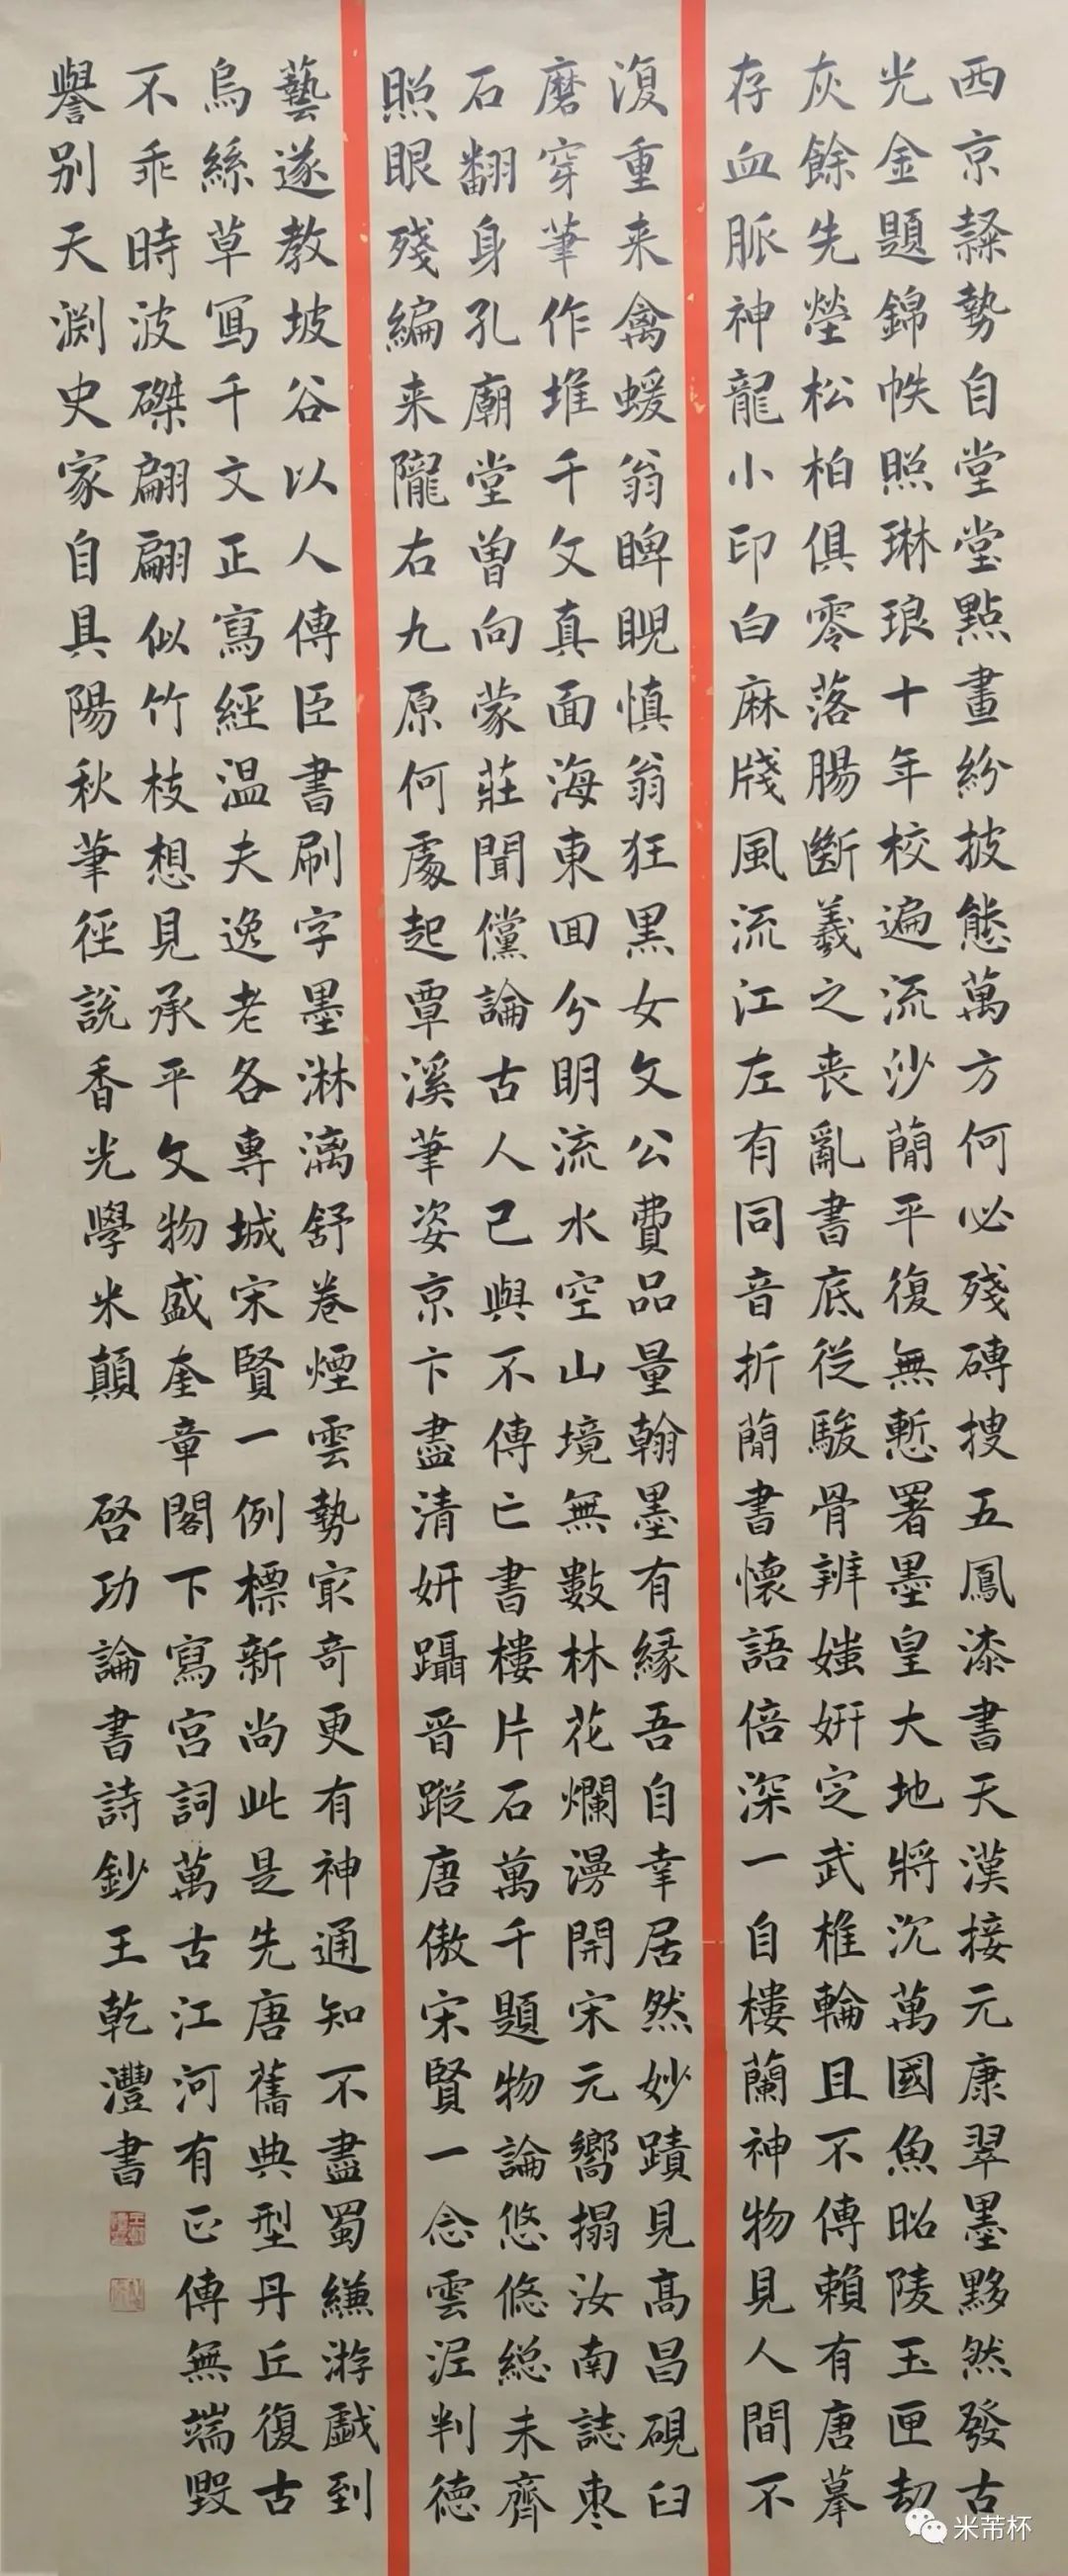 西京隸勢自堂堂點畫紛披態萬方何必殘磚搜五鳳漆書天漢接元康翠墨黟然發古
光金題錦帙照琳琅十年校遍流沙簡平復無慙署墨皇大地將沉萬國魚昭陵玉匣劫
灰餘先塋松柏俱零落腸斷羲之喪亂書底從駿骨辨媸妍定武椎輪且不傳賴有唐摹
存血脈神龍小印白麻牋風流江左有同音折簡書懷語倍深一自樓蘭神物見人間不
復重来禽蝯翁睥睨慎翁狂黑女文公費品量翰墨有緣吾自幸居然妙蹟見高昌硯臼
磨穿筆作堆千文真面海東回分明流水空山境無數林花爛漫開宋元嚮搨汝南誌棗
石翻身孔廟堂曾向蒙莊聞儻論古人已與不傳亡書樓片石萬千題物論悠悠總未齊
照眼殘編来隴右九原何處起覃溪筆姿京卞盡清妍躡晉蹤唐傲宋賢一念雲泥判德
藝遂教坡谷以人傳臣書刷字墨淋漓舒卷煙雲勢最奇更有神通知不盡蜀縑游戲到
烏絲草寫千文正寫經温夫逸老各專城宋賢一例標新尚此是先唐舊典型丹丘復古
不乖時波磔翩翩似竹枝想見承平文物盛奎章閣下寫宮詞萬古江河有正傳無端毀
譽别天淵史家自具陽秋筆徑說香光學米顛 啓功論書詩鈔王乾灃書
米芾杯